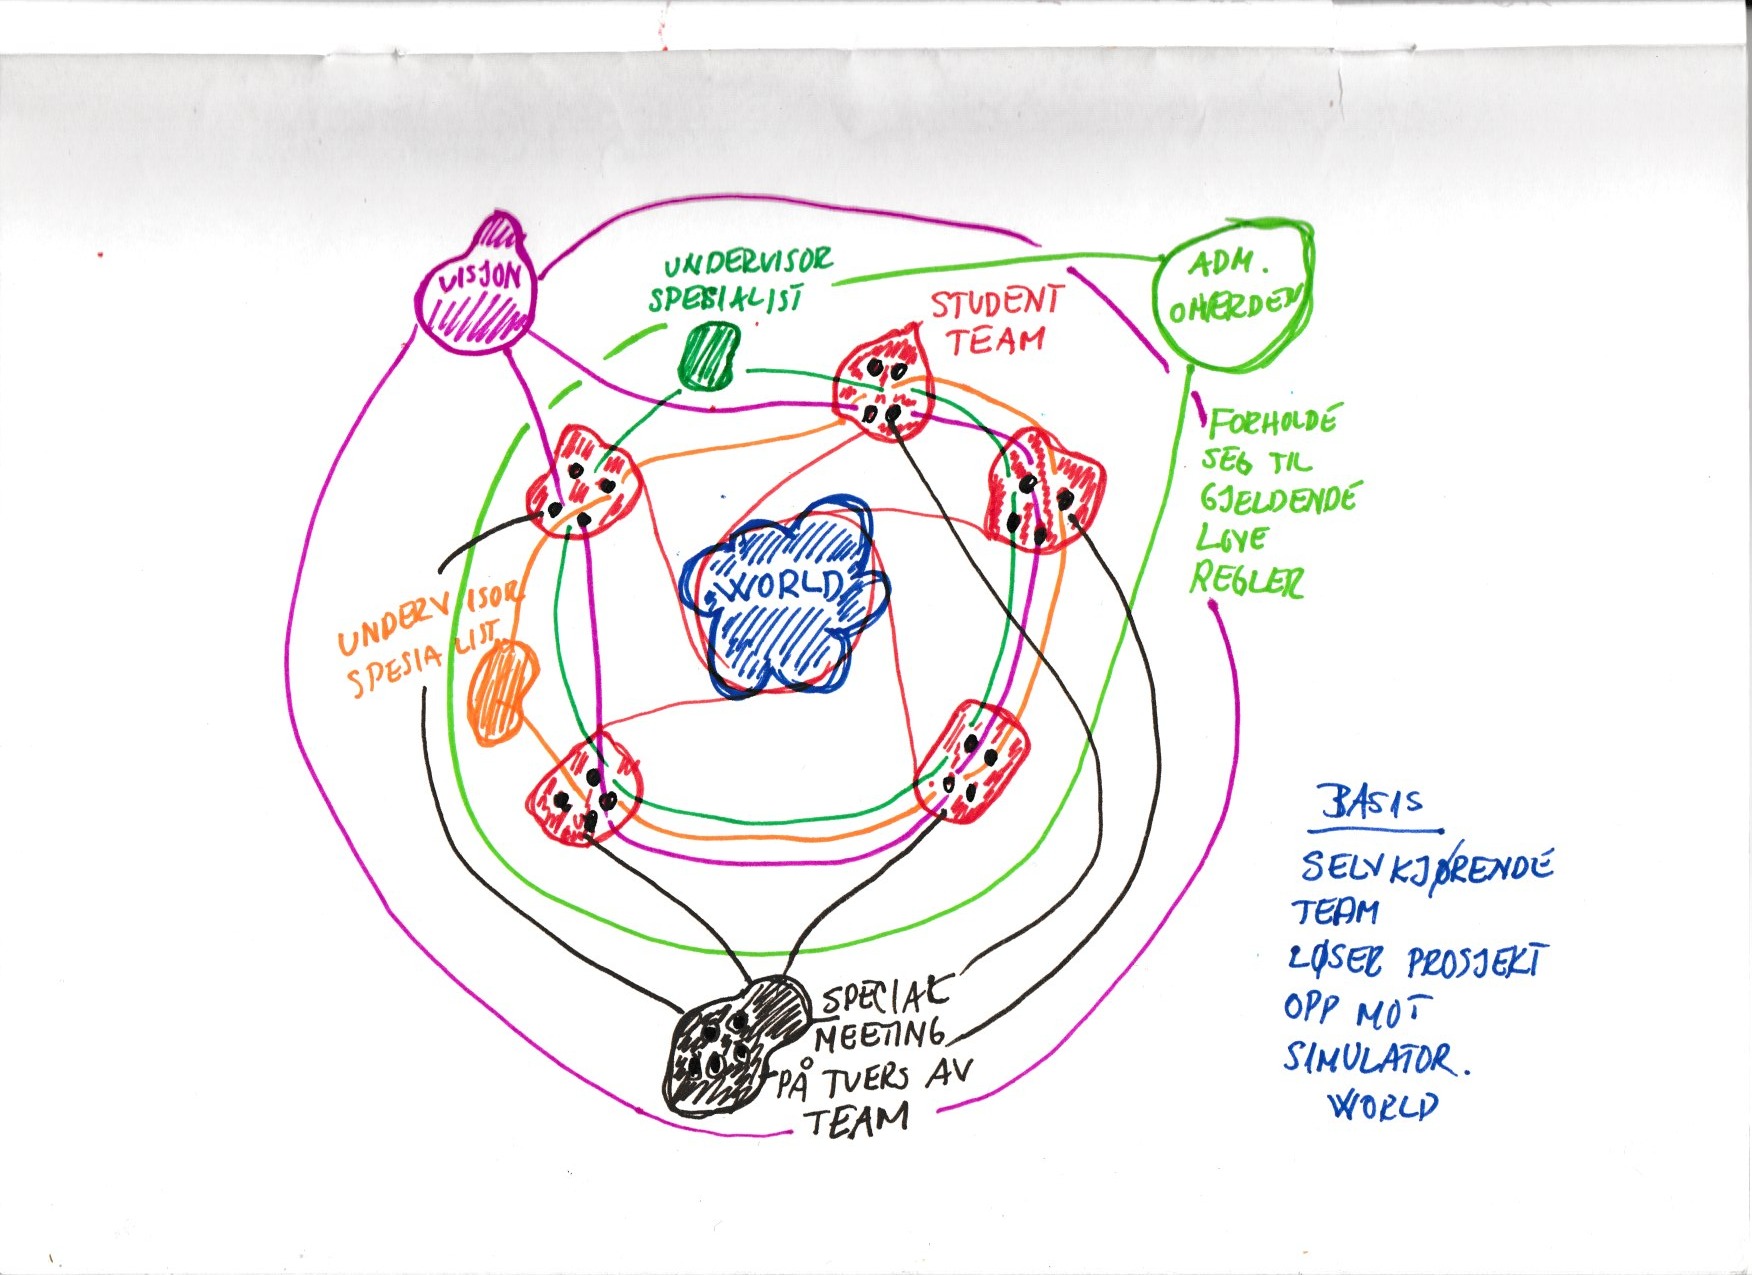 VISJON
UNDERVISOR
SPESIALIST
STUDENT
TEAM
ADM.
FORHOLDE
SEG TIL
GJELDENDE
LOVE
REGLER
WORLD
UNDERVISOR
SPESIALIST
SPECIAL
MEETING
PÅ TVERS AV
TEAM
BASIS
SELVKJØRENDE
TEAM
LØSER PROSJEKT
OPP MOT
SIMULATOR.
WORLD